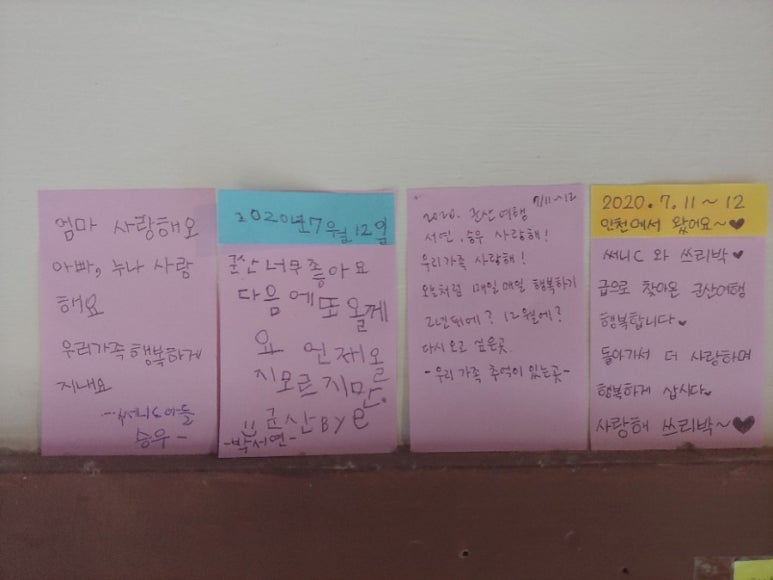 엄마 사랑해요
아빠, 누나 사랑
해요
우리가족 행복하게
지내요
써니C 아들
승우-
2020년 7월 12일
군산너무좋아요
다음에 또 올게
요 언제올
지모르지만.
군산Bye
-박서연-
2020. 군산여행 7/11~12
서연, 승우 사랑해!
우리가족 사랑해!
오늘처럼 매일매일 행복하기
2년뒤에? 12월에?
다시 오고 싶은곳
-우리 가족 추억이 있는곳-
2020.7.11~12
인천에서 왔어요~♥
써니C 와 쓰리박♥
급으로 찾아온 군산여행
행복합니다♥
돌아가서 더 사랑하며
행복하게 삽시다♥
사랑해 쓰리박~♥